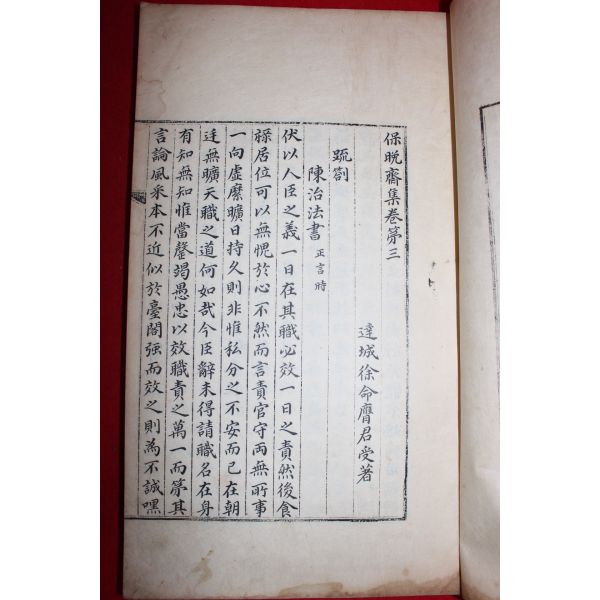 保晩齋集卷第三
達城徐命膺君受著
疏劄
陳治法書 正言時
伏以人臣之義一日在其職必效一日之責然後食
祿居位可以無愧於心不然而言責官守兩無所事
一向虛縻曠日持久則非惟私分之不安而已在朝
廷無曠天職之道何如哉今臣辭未得請職名在身
有知無知惟當罄竭愚忠以效職責之萬一而第其
言論風采本不近似於臺閣强而效之則為不誠嘿